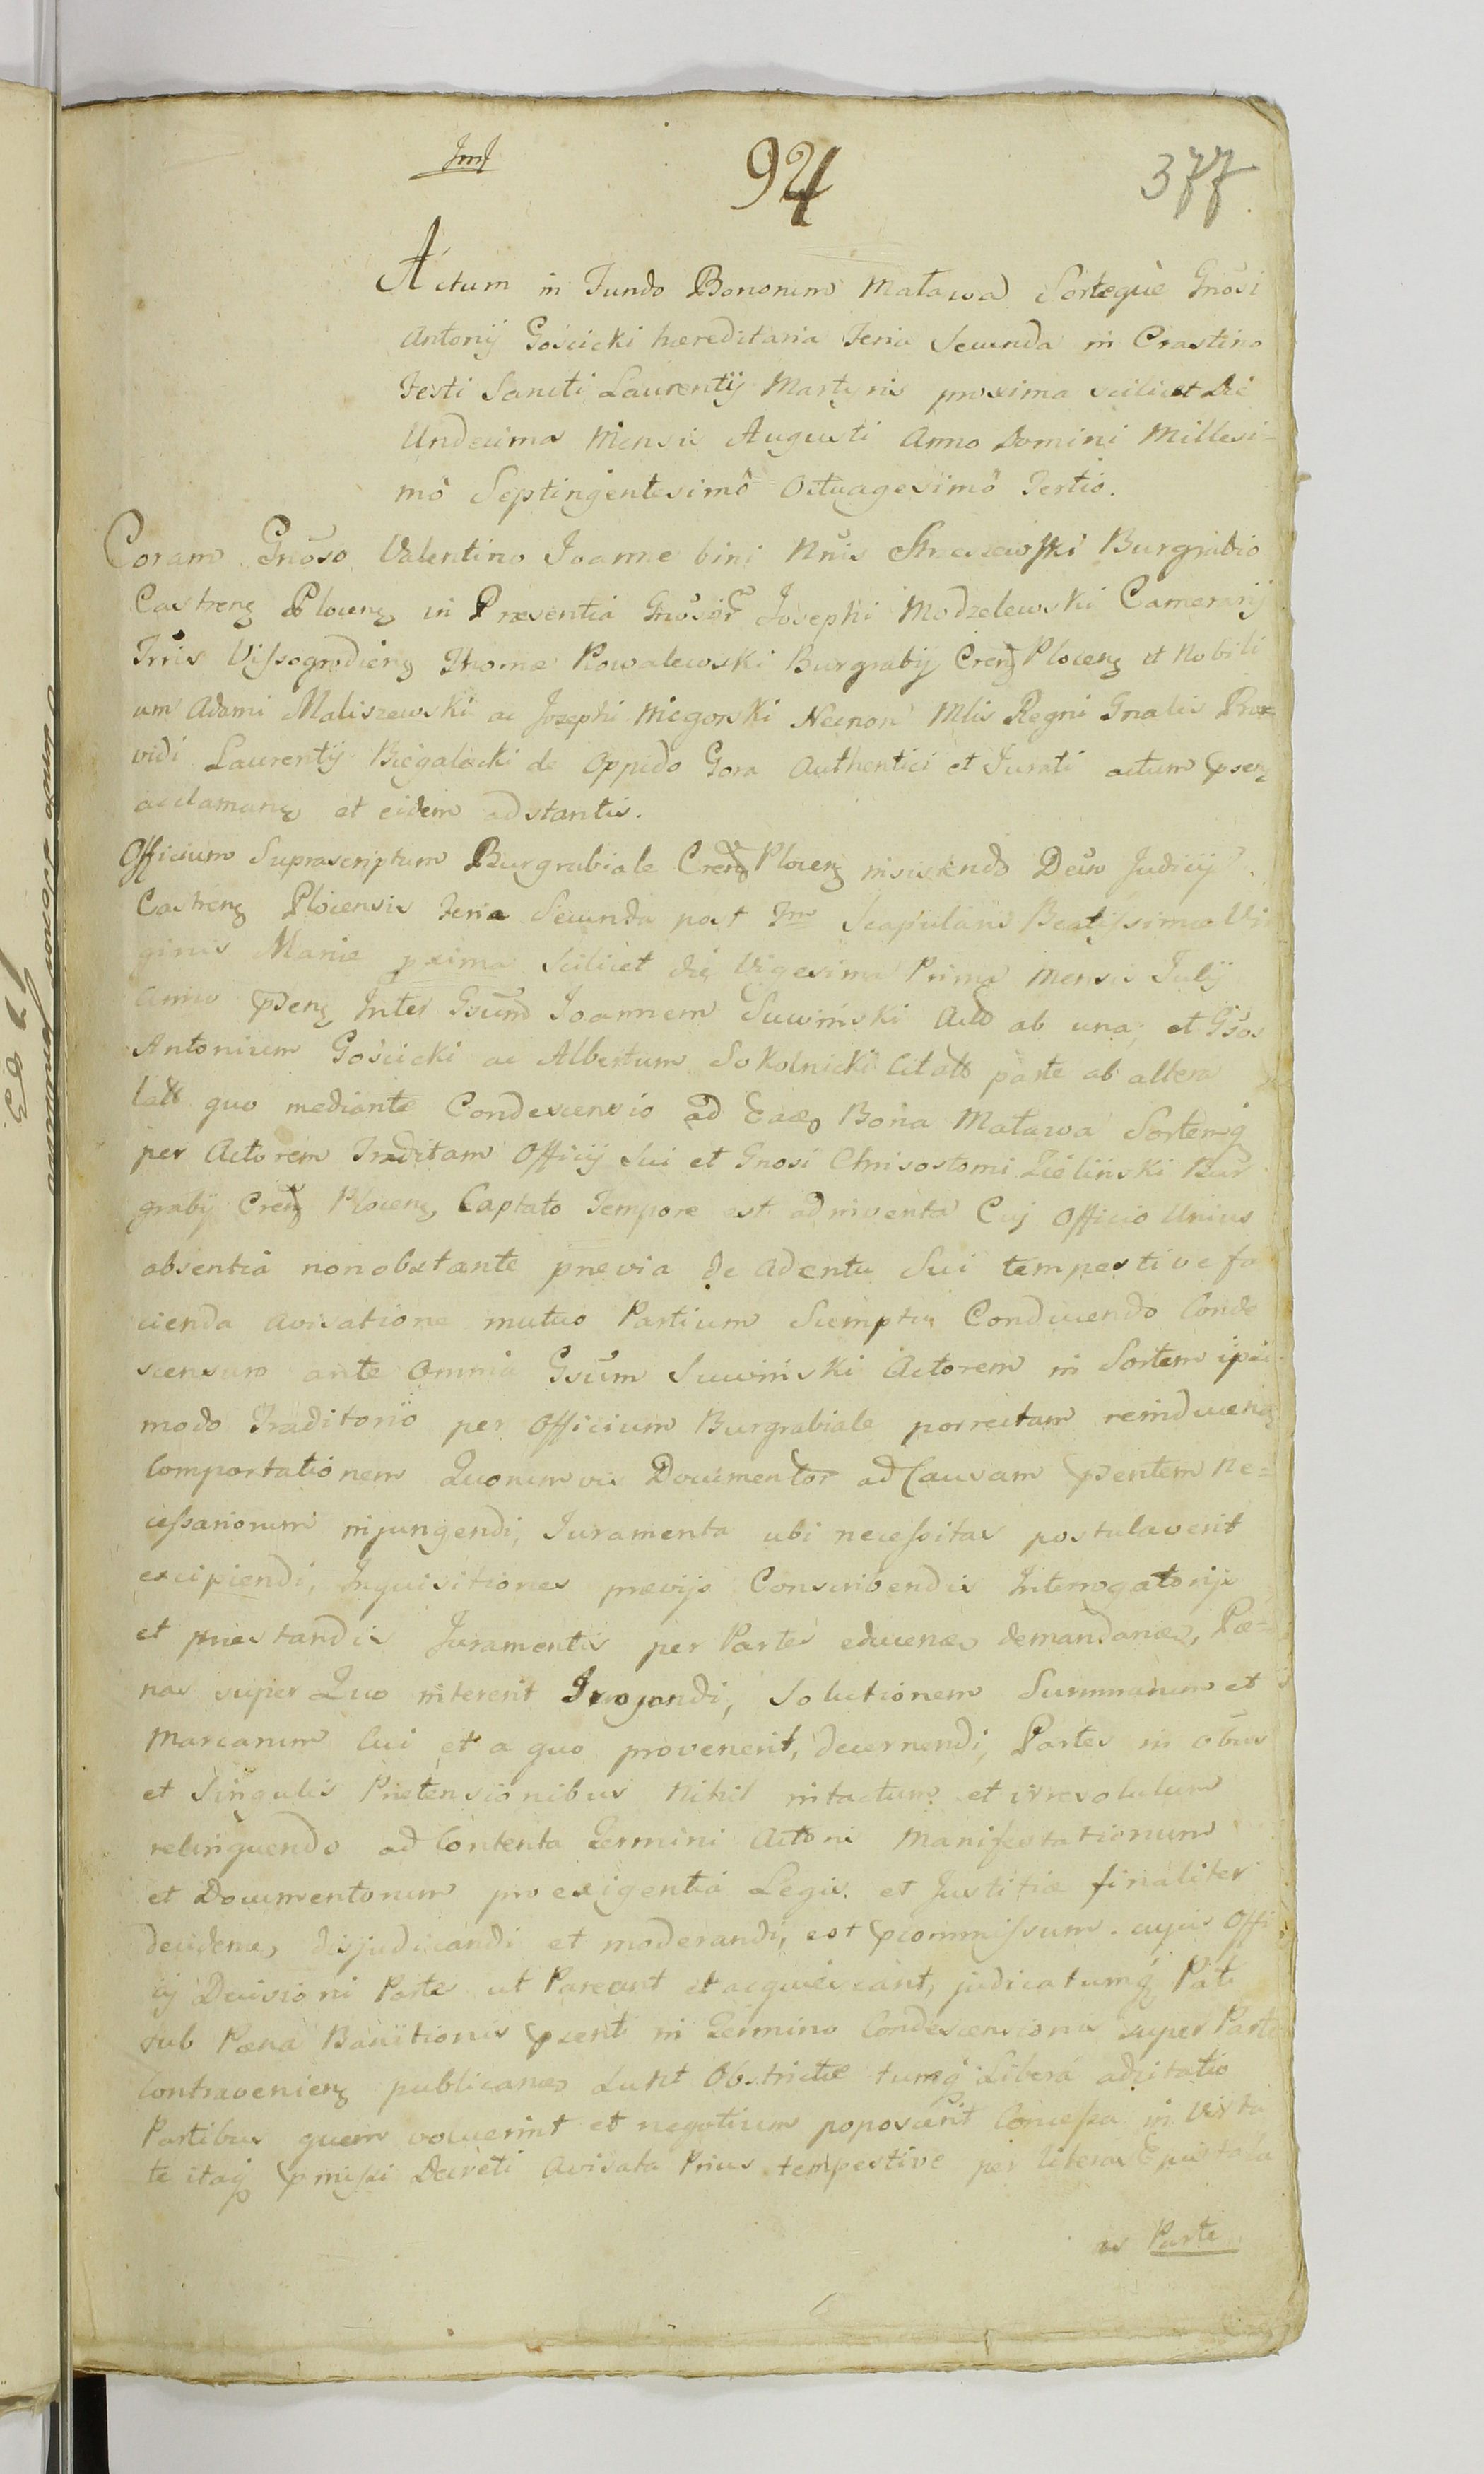 94
377
Actum in Fundo Bonorum Matawa Sorteque Gnosi
Antonij Gościcki hæreditaria Feria Secunda in Crastino
Festi Sancti Laurentij Martyris proxima scilicet Die
Undecima Mensis Augusti Anno Domini Millesi-
mô Septingentesimô Octuagesimô Tertio.
Coram Gnoso Valentino Joanne bini Nnis Burgrabio
Castreng Ploceng in Præsentia Gnosor Josephi Modzelewski Camerarij
Trris Vissogrodieng Thomæ Kowalewski Burgrabij Creng Ploceng et Nobili
um Adami Maliszewski ac Josephi Miegorski Necnon Mlis Regni Gnalis Pro-
vidi Laurentij Biegalecki de Oppido Gora Authentici et Jurati actum pseng
acclamang et eidem adstantis.
Officium Suprascriptum Burgrabiale Creng Ploceng insistendo Decro Judicij
Castreng Plocensis Feria Secunda post Ftm Scapularis Beatissimæ Vir
ginis Mariæ pxima scilicet die Vigesima Prima Mensis Julij
Anno pseng Inter Gsum Joannem Suwiński Act ab una, et Gsos
Antonium Gościcki ac Albertum Sokolnicki Citatt parte ab altera
latt quo mediante Condescensio ad Eaq Bona Matawa Sortemq
per Actorem Traditam Officij Sui et Gnosi Chrisostomi Zieliński Bur
grabij Creng Ploceng, Captato Tempore est adinventa Cuj Officio Unius
absentiâ nonobstante prævia de Adentu Sui tempestive fa
cienda avisatione mutuo Partium Sumptu Conducendo Conde
scensuro ante omnia Gsum Suwiński Actorem in Sortem ipsi
modo Traditorio per Officium Burgrabiale porrectam reinduceng
Comportationem Quorumvis Documentor ad Causam psentem Ne=
cessariorum injungendi, Juramenta ubi necessitas postulaverit
excipiendi, Inquisitiones prævijs Conscribendis Interrogatorijs
et præstandis Juramentis per Partes educenas demandanas, Pæ=
nas super Quo intererit Irrogandi, Solutionem Summarum et
Marcarum Cui et a quo provenerit, decernendi, Partes in obus
et Singulis Prætensionibus Nihil intactum et irresolutum
relinquendo ad Contenta Termini Actorii Manifestationum
et Documentorum pro exigentiâ Legis et Justitiæ finaliter
decidene, disjudicandi et moderandi, est pcommissum. cujus Offi
cij Decisioni Partes ut Pareant et acquiescant, judicatumq Pati
sub Pæna Banitionis psenti in Termino Condescensionis super Parte
Contravenieng publicanas Sunt Obstrictæ tumq Libera adcitatio
Partibus quem voluerint et negotium poposcerit Concessa in Virtu
te itaq pmissi Decreti Avisata Prius tempestive per literas Epistola
es Parte